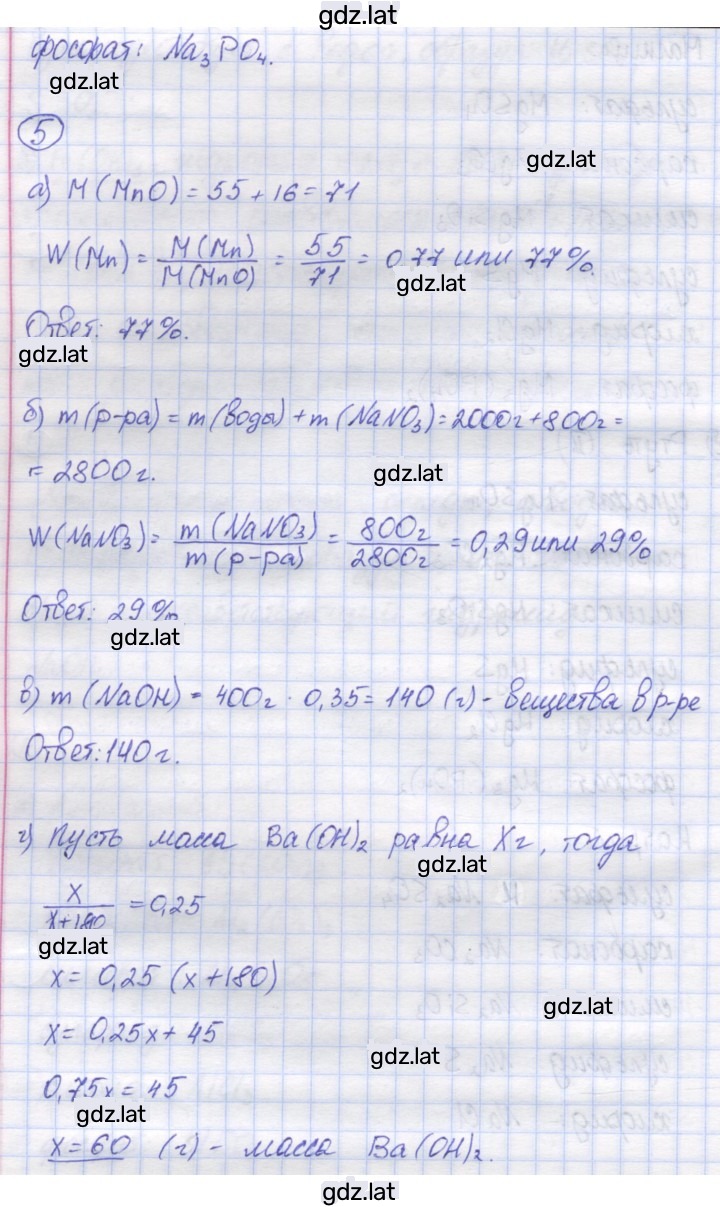 gdz.lat
фосфат: Na₃PO₄.
gdz.lat
5
gdz.lat
а) M(MnO) = 55 + 16 = 71
W(Mn) = M(Mn) / M(MnO) = 55 / 71 = 0.77 или 77%.
gdz.lat
Ответ: 77%.
gdz.lat
б) m(р-ра) = m(воды) + m(NaNO₃) = 2000г + 800г =
= 2800г.
gdz.lat
W(NaNO₃) = m(NaNO₃) / m(р-ра) = 800г / 2800г = 0,29 или 29%
Ответ: 29%.
gdz.lat
в) m(NaOH) = 400г · 0,35 = 140 (г) - вещества в р-ре
Ответ: 140г.
г) Пусть масса Ba(OH)₂ равна Xг, тогда
gdz.lat
x / x+180 = 0,25
gdz.lat
x = 0,25 (x + 180)
gdz.lat
x = 0,25x + 45
gdz.lat
0,75x = 45
gdz.lat
x = 60 (г) - масса Ba(OH)₂.
gdz.lat